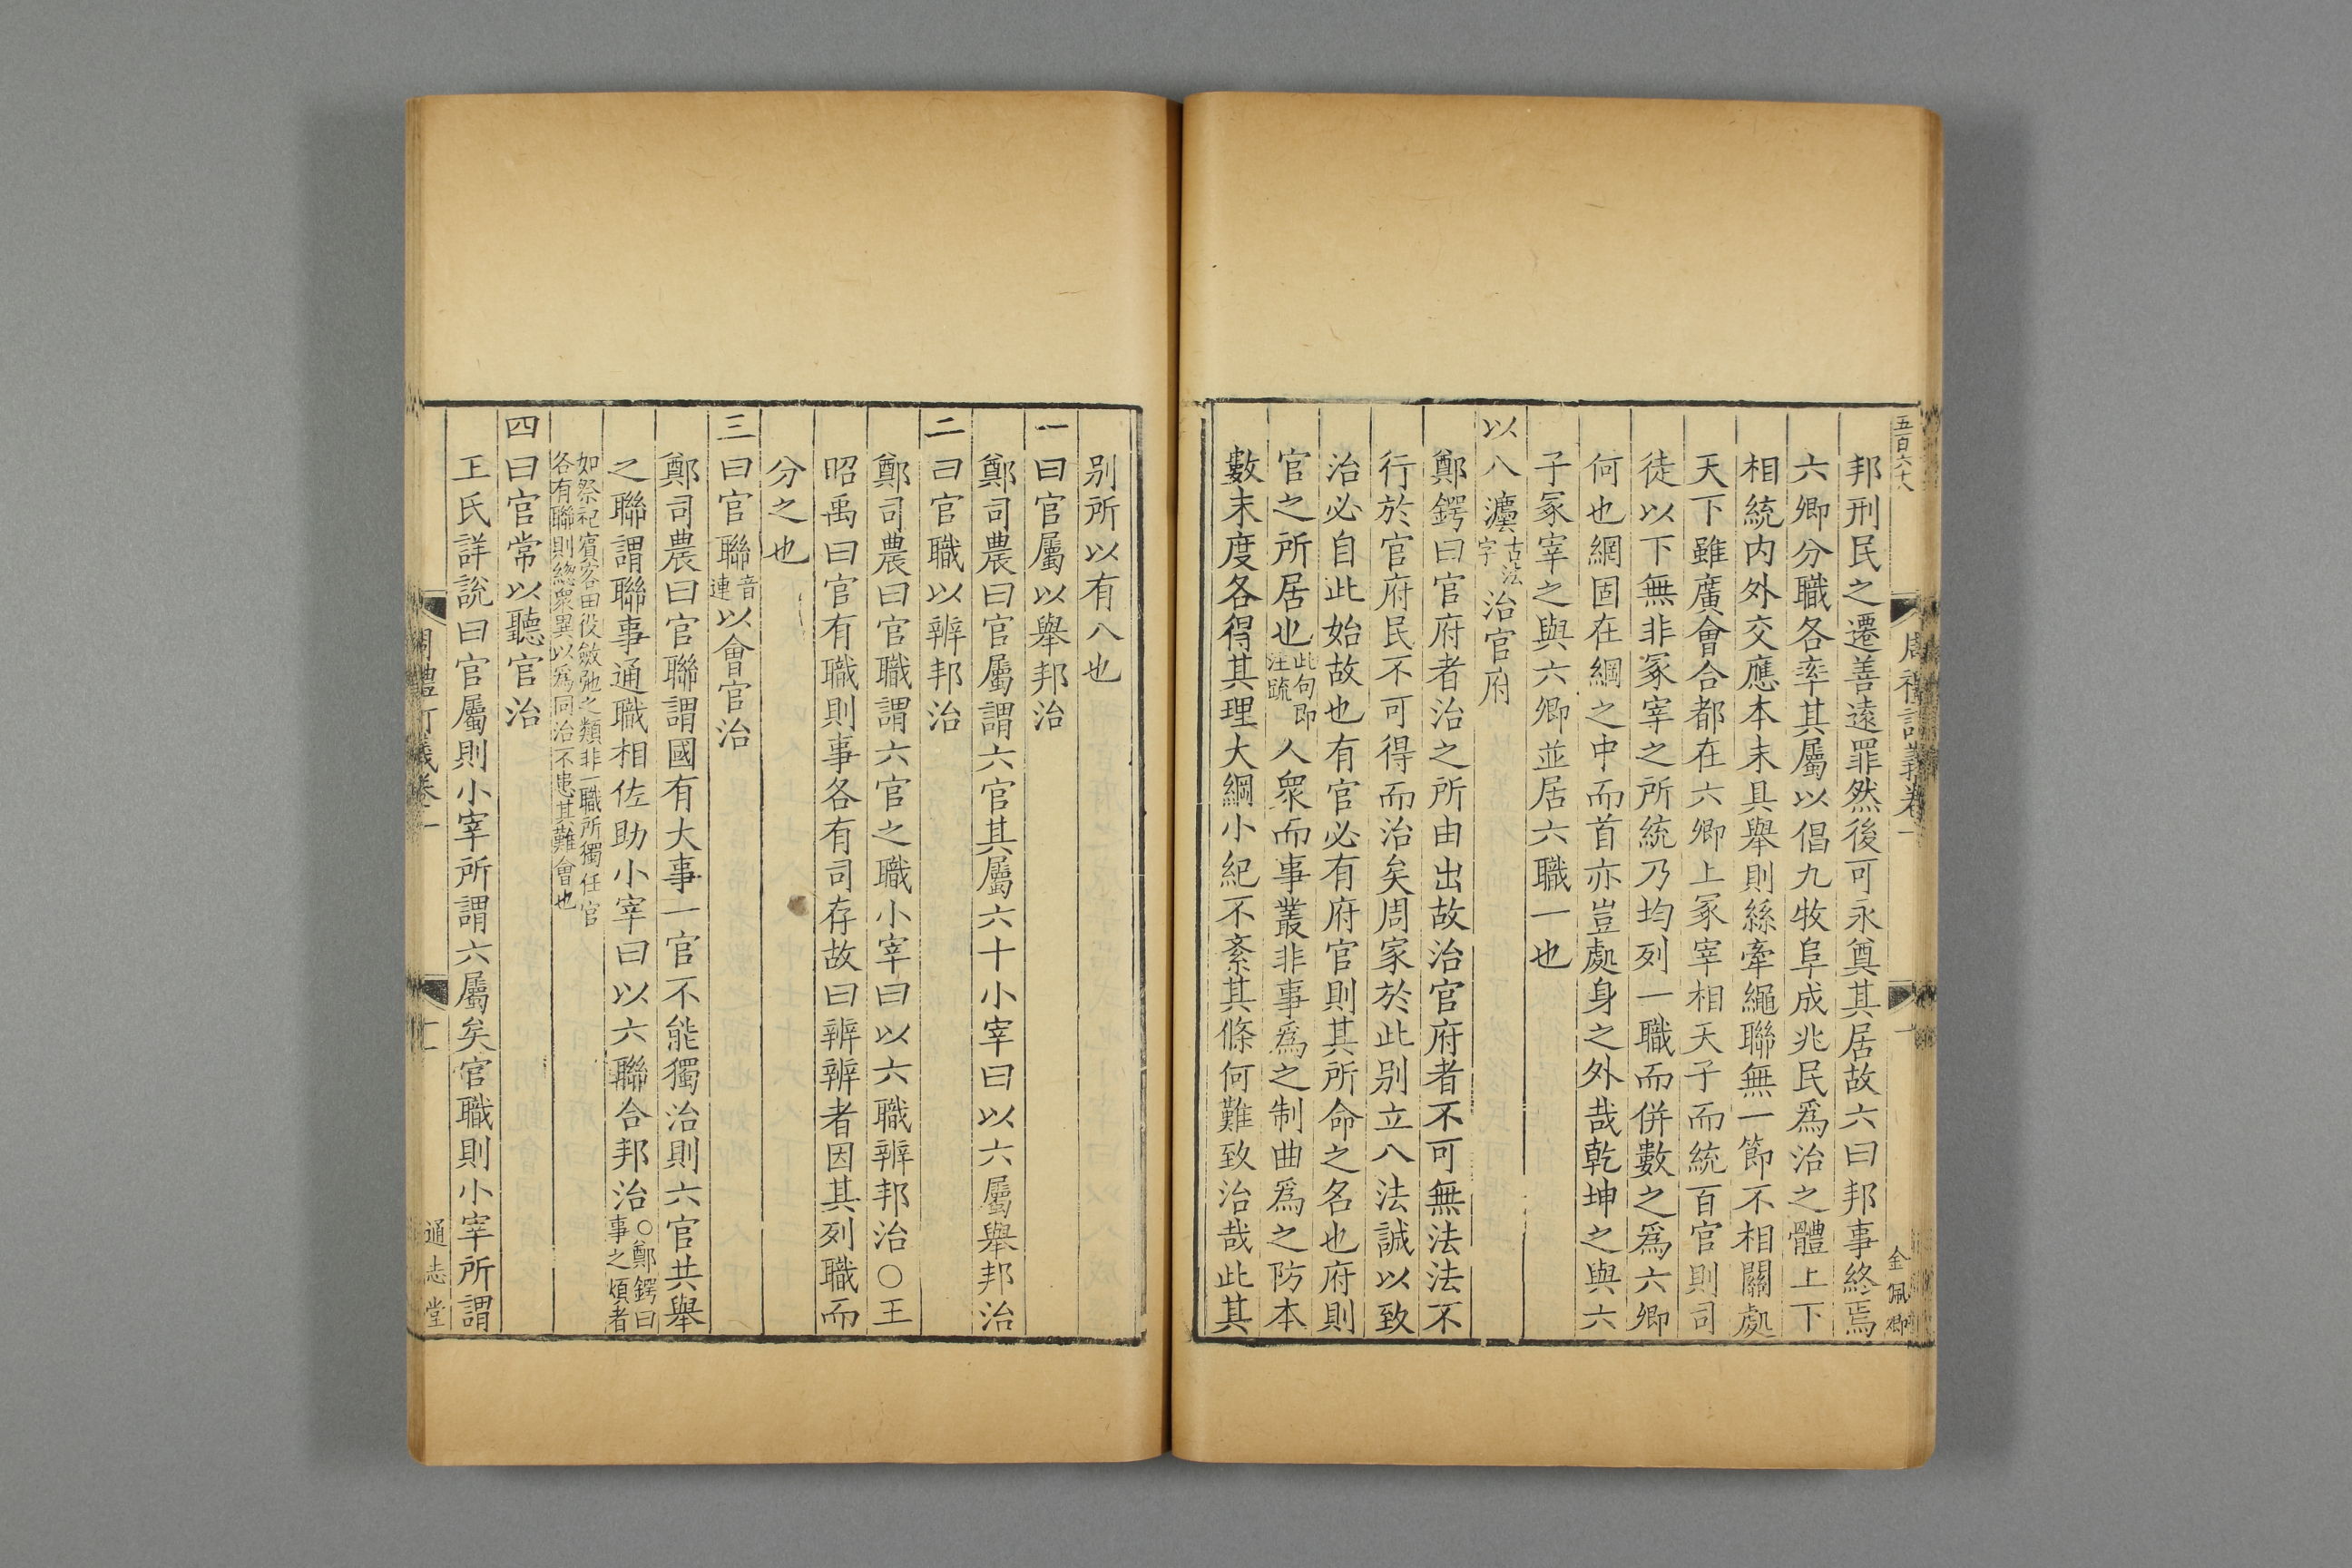 五百六十八
周禮訂義卷一
金佩卿
邦刑民之遷善遠罪然後可永奠其居故六曰邦事終焉
六卿分職各率其屬以倡九牧阜成兆民爲治之體上下
相統内外交應本末具舉則絲牽繩聯無一節不相關處
天下雖廣會合都在六卿上冢宰相天子而統百官則司
徒以下無非冢宰之所統乃均列一職而併數之爲六卿
何也綱固在綱之中而首亦豈處身之外哉乾坤之與六
子冢宰之與六卿並居六職一也
以八灋古法字治官府
鄭鍔曰官府者治之所由出故治官府者不可無法法不
行於官府民不可得而治矣周家於此别立八法誠以致
治必自此始故也有官必有府官則其所命之名也府則
官之所居也此句即注疏人衆而事叢非事爲之制曲爲之防本
數末度各得其理大綱小紀不紊其條何難致治哉此其
别所以有八也
一曰官屬以舉邦治
鄭司農曰官屬謂六官其屬六十小宰曰以六屬舉邦治
二曰官職以辨邦治
鄭司農曰官職謂六官之職小宰曰以六職辨邦治○王
昭禹曰官有職則事各有司存故曰辨辨者因其列職而
分之也
三曰官聯音連以會官治
鄭司農曰官聯謂國有大事一官不能獨治則六官共舉
之聯謂聯事通職相佐助小宰曰以六聯合邦治○鄭鍔曰事之煩者
如祭祀賓客田役斂弛之類非一職所獨任官
各有聯則總衆異以爲同治不患其難會也
四曰官常以聽官治
王氏詳說曰官屬則小宰所謂六屬矣官職則小宰所謂
周禮訂義卷一
十一
通志堂